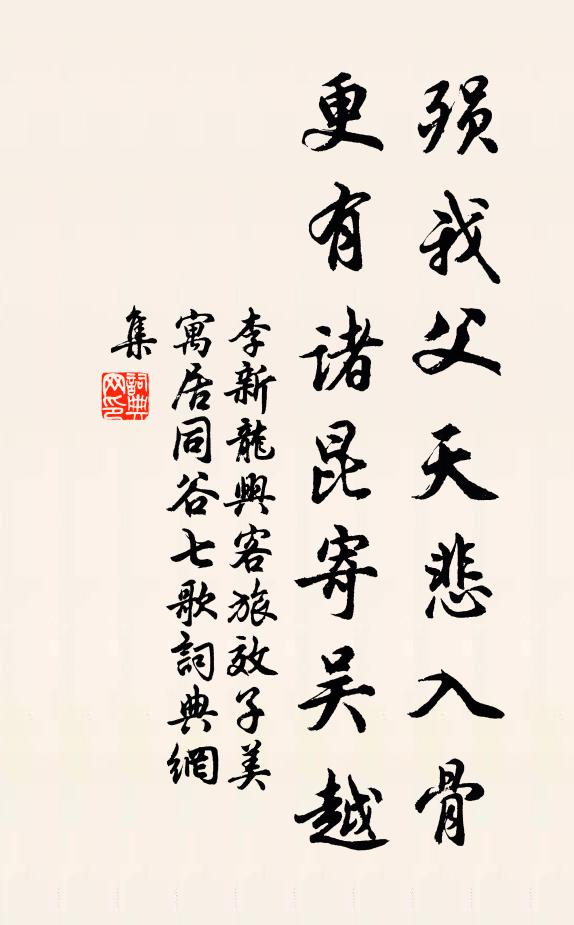 殒我父天悲入骨
更有诸昆寄吴越
李新龍興客旅效子美
寓居同谷七歌詞典網
集
詞典
网印